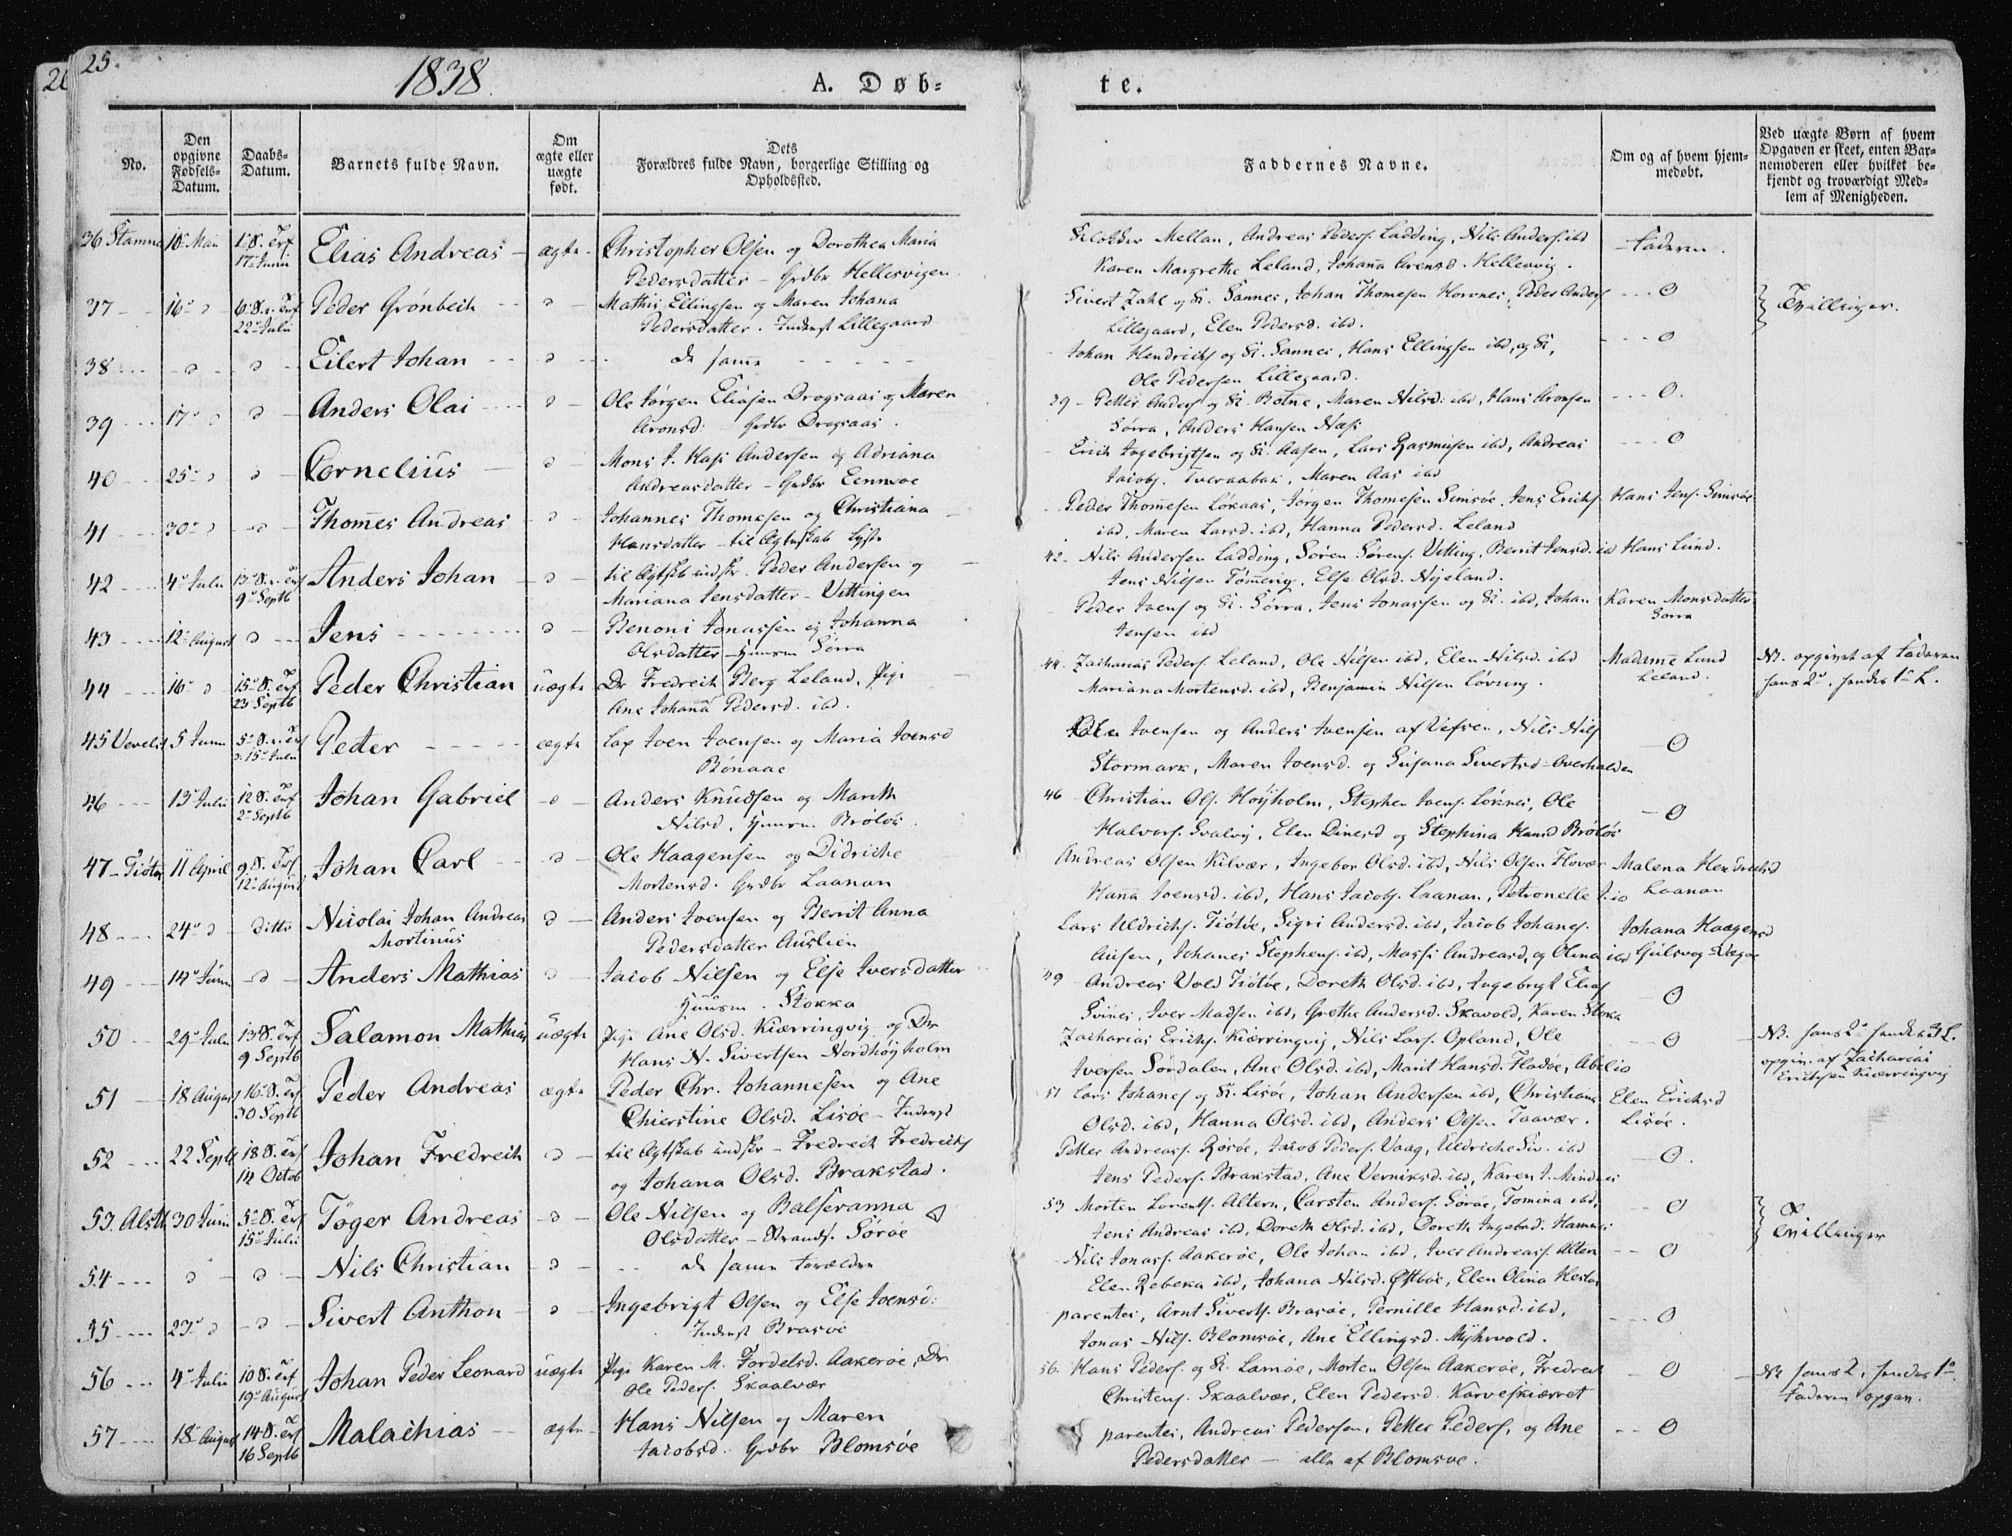 25.
1838.
A. Døb-
te.
No.
Den opgivne Fødsels-Datum.
Daabs-Datum.
Barnets fulde Navn.
Om ægte eller uægte født.
Dets Forældres fulde Navn, borgerlige Stilling og Opholdssted.
Faddernes Navne.
Om og af hvem hjem-medøbt.
Ved uægte Børn af hvem Opgaven er skeet, enten Bar-nemoderen eller hvilket be-kjendt og troværdigt Med-lem af Menigheden.
36 Stamnes 10 Mai 17 Junii Elias Andreas ægte Christopher Olsen og Dorothea Maria
Pedersdatter - Grdbr Hellesvigen
Mellan, Andreas Peders. Ladding, Nils Anders. ibd
Karen Margrethe Leland, Johana Arensd. Hellesvig.
Faderen.
37 16 22 Julii Peder Grønbech Mathis Ellingsen og Maren Johana
Pedersdatter. Inderst Lillegaard
Sivert Zahl og K. Sannes, Johan Thomesen Hornes, Peder Anders
Lillegaard, Elen Pedersd. ibd.
0
Tvillinger.
38 Eilert Johan de samme
Johan Hendrichs og K. Sannes, Hans Ellingsen ibd, og K,
Ole Pedersen Lillegaard.
0
39 17 Anders Olai Ole Jørgen Eliasen Drogsaas og Maren
Aronsd. Grdbr Drogsaas.
39 - Petter Anders og K. Botne, Maren Nilsd. ibd, Hans Aronsen
Sørra, Anders Hansen Næss
0.
40 25 Cornelius Mons J. Hass Andersen og Adriana
Andreasdatter - Grdbr Eenmoe
Erich Ingebrigtsen og K. Aasen, Lars Rasmusen ibd, Andreas
Jacobs. Tveraabak, Maren Aas ibd
0
41 30 Thomes Andreas Johannes Thomesen og Christiana
Hansdatter - til Egteskab lyste
Peder Thomesen Løkaas, Jørgen Thomesen Simsøe, Jens Erichs.
ibd, Maren Larsd. ibd, Hanna Pedersd. Leland
Hans Jens. Simsøe
42 4 Julii 9 Septb Anders Johan til Egtsk indskr. Peder Andersen og
Mariana Jensdatter - Vittingen
42 - Nils Andersen Ladding, Søren Sørens. Vitting, Berrit Jensd. ibd
Jens Nilsen Tømerig, Else Olsd. Nyeland.
Hans Lund.
43 12 August Jens Benoni Jonassen og Johanna
Olsdatter - Huusm Sørra
Peder Ivens og K. Sørra, Jens Jonassen og K. ibd, Johan
Jensen ibd
Karen Monsdatter
Sørra
44 16 23 Septb Peder Christian uægte Dr Fredrich Berg Leland, Pige
Ane Johana Pedersd. ibd.
44 - Zacharias Peders. Leland, Ole Nilsen ibd, Elen Nilsd. ibd
Mariana Mortensd. ibd, Benjamin Nilsen Løvung.
Madame Lund
Leland.
NB. opgivet af Faderen
hans 2, hendes 1 L.
45 Vevels. 5 Junii 15 Julii Peder ægte Lap Iven Ivensen og Maria Ivensd
Bønaae
Ivensen og Anders Ivensen af Vefsen, Nils Nils
Stormark, Maren Ivensd. og Susana Sivertsd - Overhalden
0
46 13 Julii 2 Septb Johan Gabriel Anders Knudsen og Mareth
Nilsd, Huusm. Brøløs
46 - Christian Ols. Høyholm, Stephen Ivens. Løknes, Ole
Halvors. Svalvig, Elen Dinesd og Stephina Hansd Brøløs
0
47 - Tiøtø 11 April 12 August Johan Carl Ole Haagensen og Didriche
Mortensd. Grdbr Laanan
Andreas Olsen Kilvær, Ingebor Olsd. ibd, Nils Olsen Flovær
Hanna Ivensd. ibd, Hans Jacobs. Laanan, Petronelle J. ib
Malena Hendrichsd
Laanan
48 24 ditto Nicolai Johan Andreas
Mortinus
Anders Ivensen og Berrit Anna
Pedersdatter Auslien
Lars Uldrichs. Tiøtøe, Sigri Andersd. ibd, Jacob Johanes.
Ausen, Johanes Stephens. ibd, Massi Andreasd, og Olina ibd
Johana Haagensd
Gulsvog - Vegøe
49 14 Junii Anders Mathias Jacob Nilsen og Else Iversdatter
Huusm. Stokka
49 Andreas Vold Tiøtøe, Doreth Olsd. ibd, Ingebrigt Elias
Svines, Iver Madsen ibd, Grethe Andersd. Skavold, Karen Stokka
0
50 29 Julii 9 Septb Salamon Mathias uægte Pige Ane Olsd. Kiærringvig og Dr
Hans N. Sivertsen Nordhøyholm
Zacharias Erichs. Kiærringvig, Nils Lars. Opland, Ole
Iversen Sørdalen, Ane Olsd. ibd, Marit Hansd. Fladøe, Abel ib
0
NB. hans 2 hendes 3 L.
opgiv. af Zacharias
Erichsen Kiærringvig
51 18 August 30 Septb Peder Andreas ægte Peder Chr. Johannesen og Ane
Chierstine Olsd. Lisøe - Inderst
51 Lars Johanes og K. Lisøe, Johan Andersen ibd, Christiana
Olsd. ibd, Hanna Olsd. ibd, Anders Olsen Taavær.
Elen Erichsd
Lisøe.
52 22 Septb 14 Octob Johan Fredrich til Egtskab indskr - Fredrich Fredrichs
og Johana Olsd. Brakstad.
Petter Andreass. Røsøe, Jacob Peders. Vaag, Uldriche Siv. ibd
Jens Peders. Brakstad, Ane Verniksd. ibd, Karen J. Mindnes
0.
53. Alsth. 30 Junii 15 Julii Tøger Andreas Ole Nilsen og Balseranna
Olsdatter - Strands. Sørøe
53 Morten Lorents. Altern, Carsten Anders. Sørøe, Tomina ibd,
Jens Andreas ibd, Doreth Olsd. ibd, Doreth Ingebrd. Hamnes
0
Tvillinger
54 Nils Christian de samme Forældre
Nils Jonass. Aakerøe, Ole Johan ibd, Iver Andreass. Alten
Elen Rebeka ibd, Johana Nilsd. Østbøe, Elen Olina Hestøe
0
55 23 Sivert Anthon Ingebrigt Olsen og Else Ivensd:
Inderst Brasøe
parentes, Arnt Siverts. Brasøe, Pernille Hansd. ibd,
Jonas Nils. Blomsøe, Ane Ellingsd. Myhrvold.
0
56 4 Julii 19 August Johan Peder Leonard uægte Pige Karen M. Fordelsd. Aakerøe, Dr
Ole Peders. Skaalvær
56. Hans Peders. og K. Lamøe, Morten Olsen Aakerøe, Fredrich
Christens. Skaalvær, Elen Pedersd. Karveskiærret
0
NB hans 2, hendes 1
Faderen opgav.
57 18 August 16 Septb Malachias ægte Hans Nilsen og Maren
Jacobsd. Grdbr Blomsøe
parentes, Andreas Pedersen, Petter Peders, og Ane
Pedersdatter - alle af Blomsøe.
0